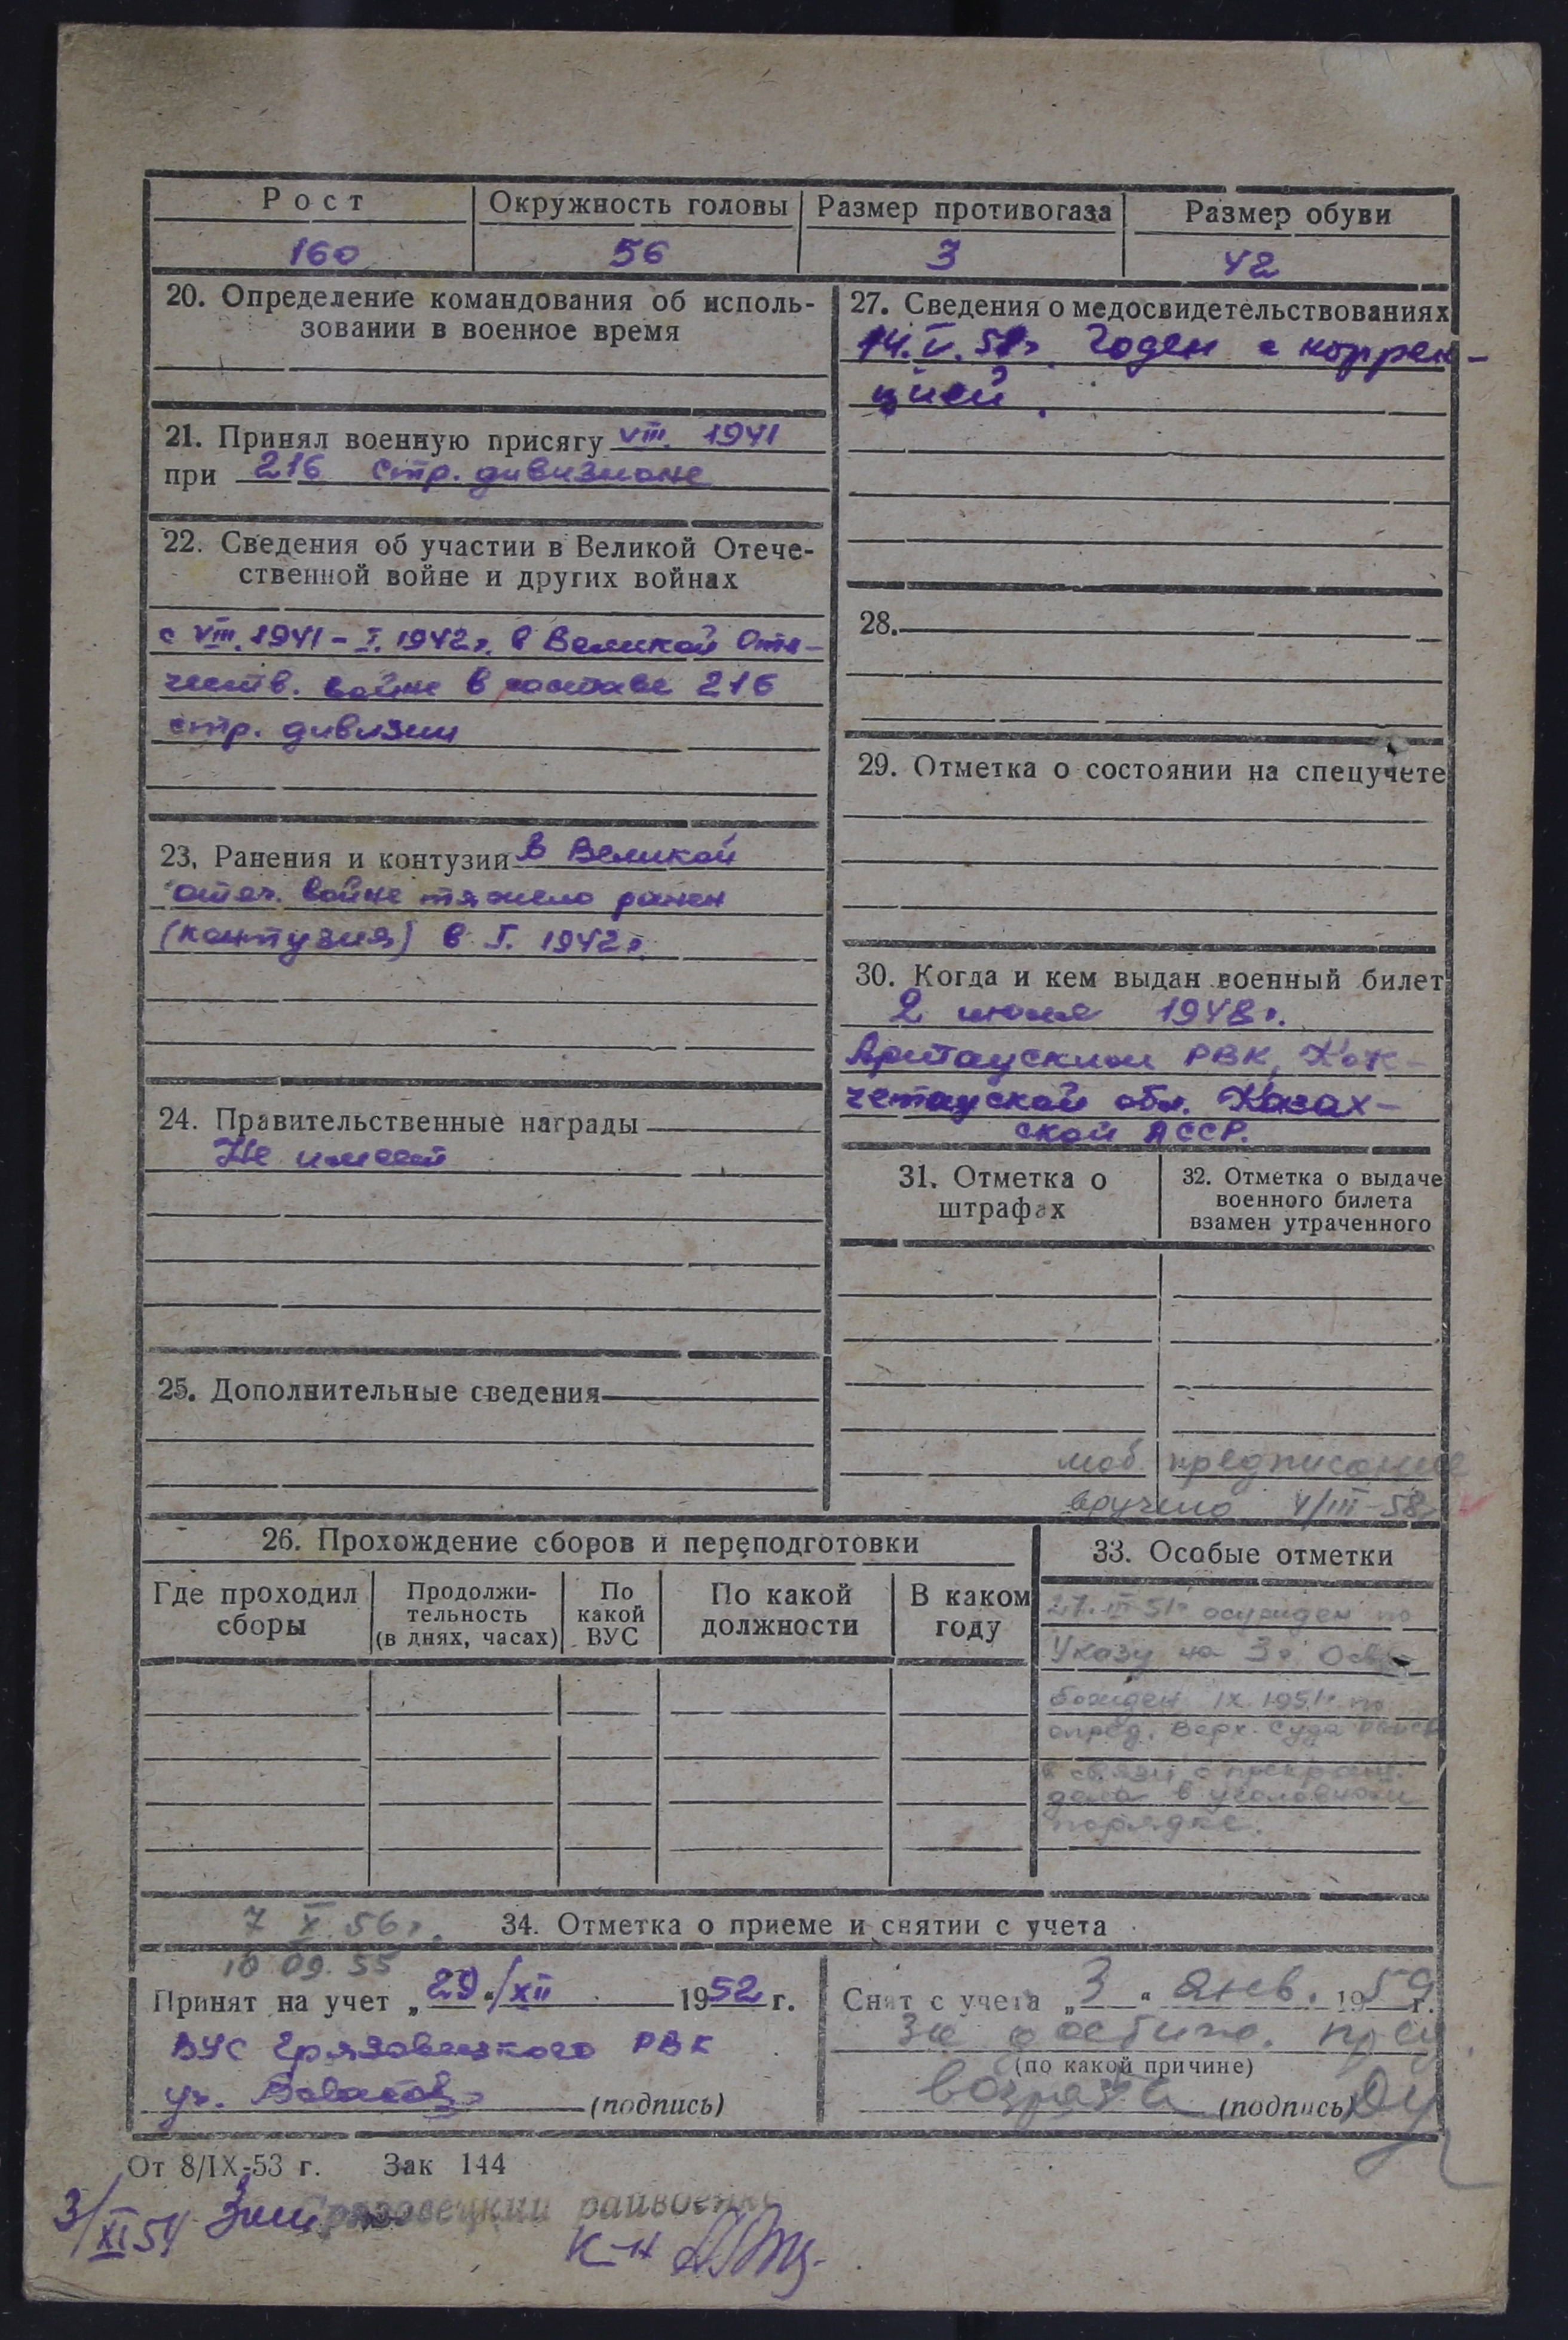 Рост
Окружность головы
Размер противогаза
Размер обуви
160
56
3
42
20. Определение командования об исполь-
зовании в военное время
21. Принял военную присягу VIII. 1941
при 216 стр. дивизионе
22. Сведения об участии в Великой Отече-
ственной войне и других войнах
с VIII. 1941 – I. 1942 г. в Великой Оте-
честв. войне в составе 216
стр. дивизии
23. Ранения и контузии в Великой
отеч. войне тяжело ранен
(контузия) в I. 1942 г.
24. Правительственные награды
Не имеет
25. Дополнительные сведения
27. Сведения о медосвидетельствованиях
14. V. 51 г. Годен с коррек-
цией.
28.
29. Отметка о состоянии на спецучете
30. Когда и кем выдан военный билет
2 июля 1948 г.
РВК, Кок-
четауской обл. Казах-
ской АССР.
31. Отметка о
штрафах
32. Отметка о выдаче
военного билета
взамен утраченного
моб. предписание
вручено V/III-58г
26. Прохождение сборов и переподготовки
Где проходил
сборы
Продолжи-
тельность
(в днях, часах)
По
какой
ВУС
По какой
должности
В каком
году
33. Особые отметки
27. III 51г осужден по
Указу на 3 г. Осво
божден IX 1951г по
опред. Верх. Суда
в связи с прекращ.
дела в уголовном
порядке.
7 X. 56 г.
34. Отметка о приеме и снятии с учета
10 09. 55
Принят на учет „29“/XII 1952 г.
ВУС Грязовецкого РВК
(подпись)
Снят с учета „3“ янв. 1959 г.
за достиж. пред
(по какой причине)
возраста (подпись)
От 8/IX-53 г. Зак 144
3/XI 54
Грязовецкий райвоенк
К-н